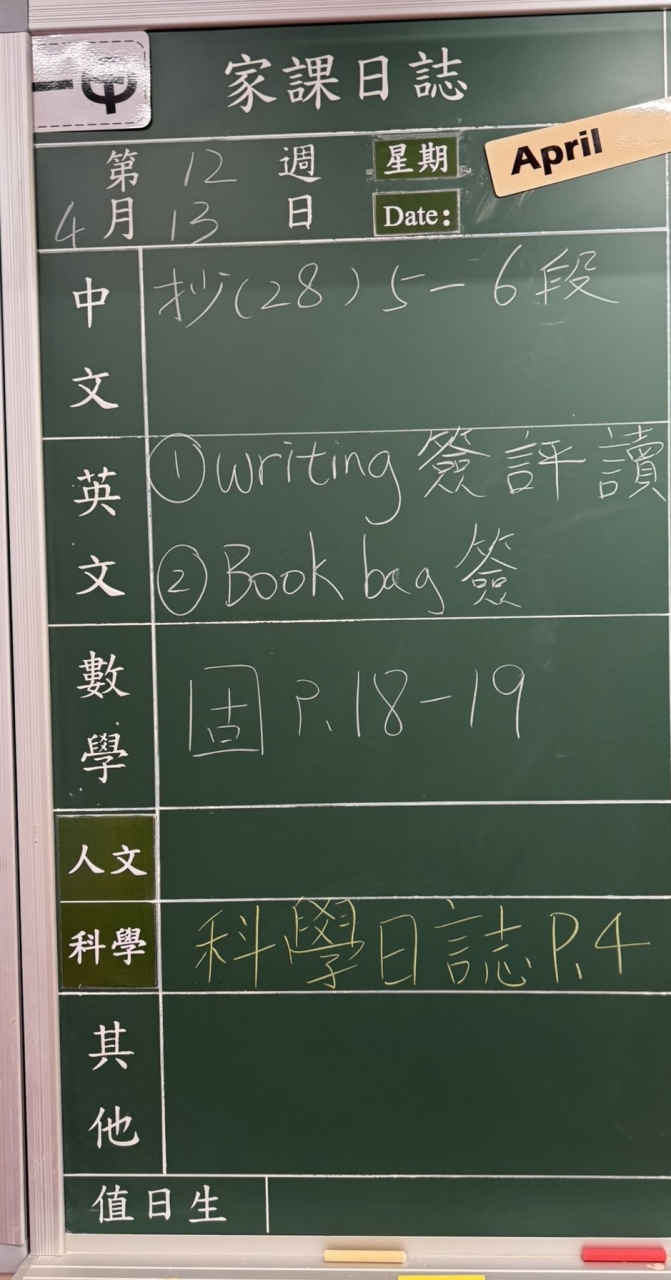 一甲
家課日誌
第 12 週 星期 April
4月 13 日 Date:
中文 抄(28) 5-6段
英文 ①writing 簽評讀
②Book bag 簽
數學 固 P.18-19
人文
科學 科學日誌P.4
其他
值日生